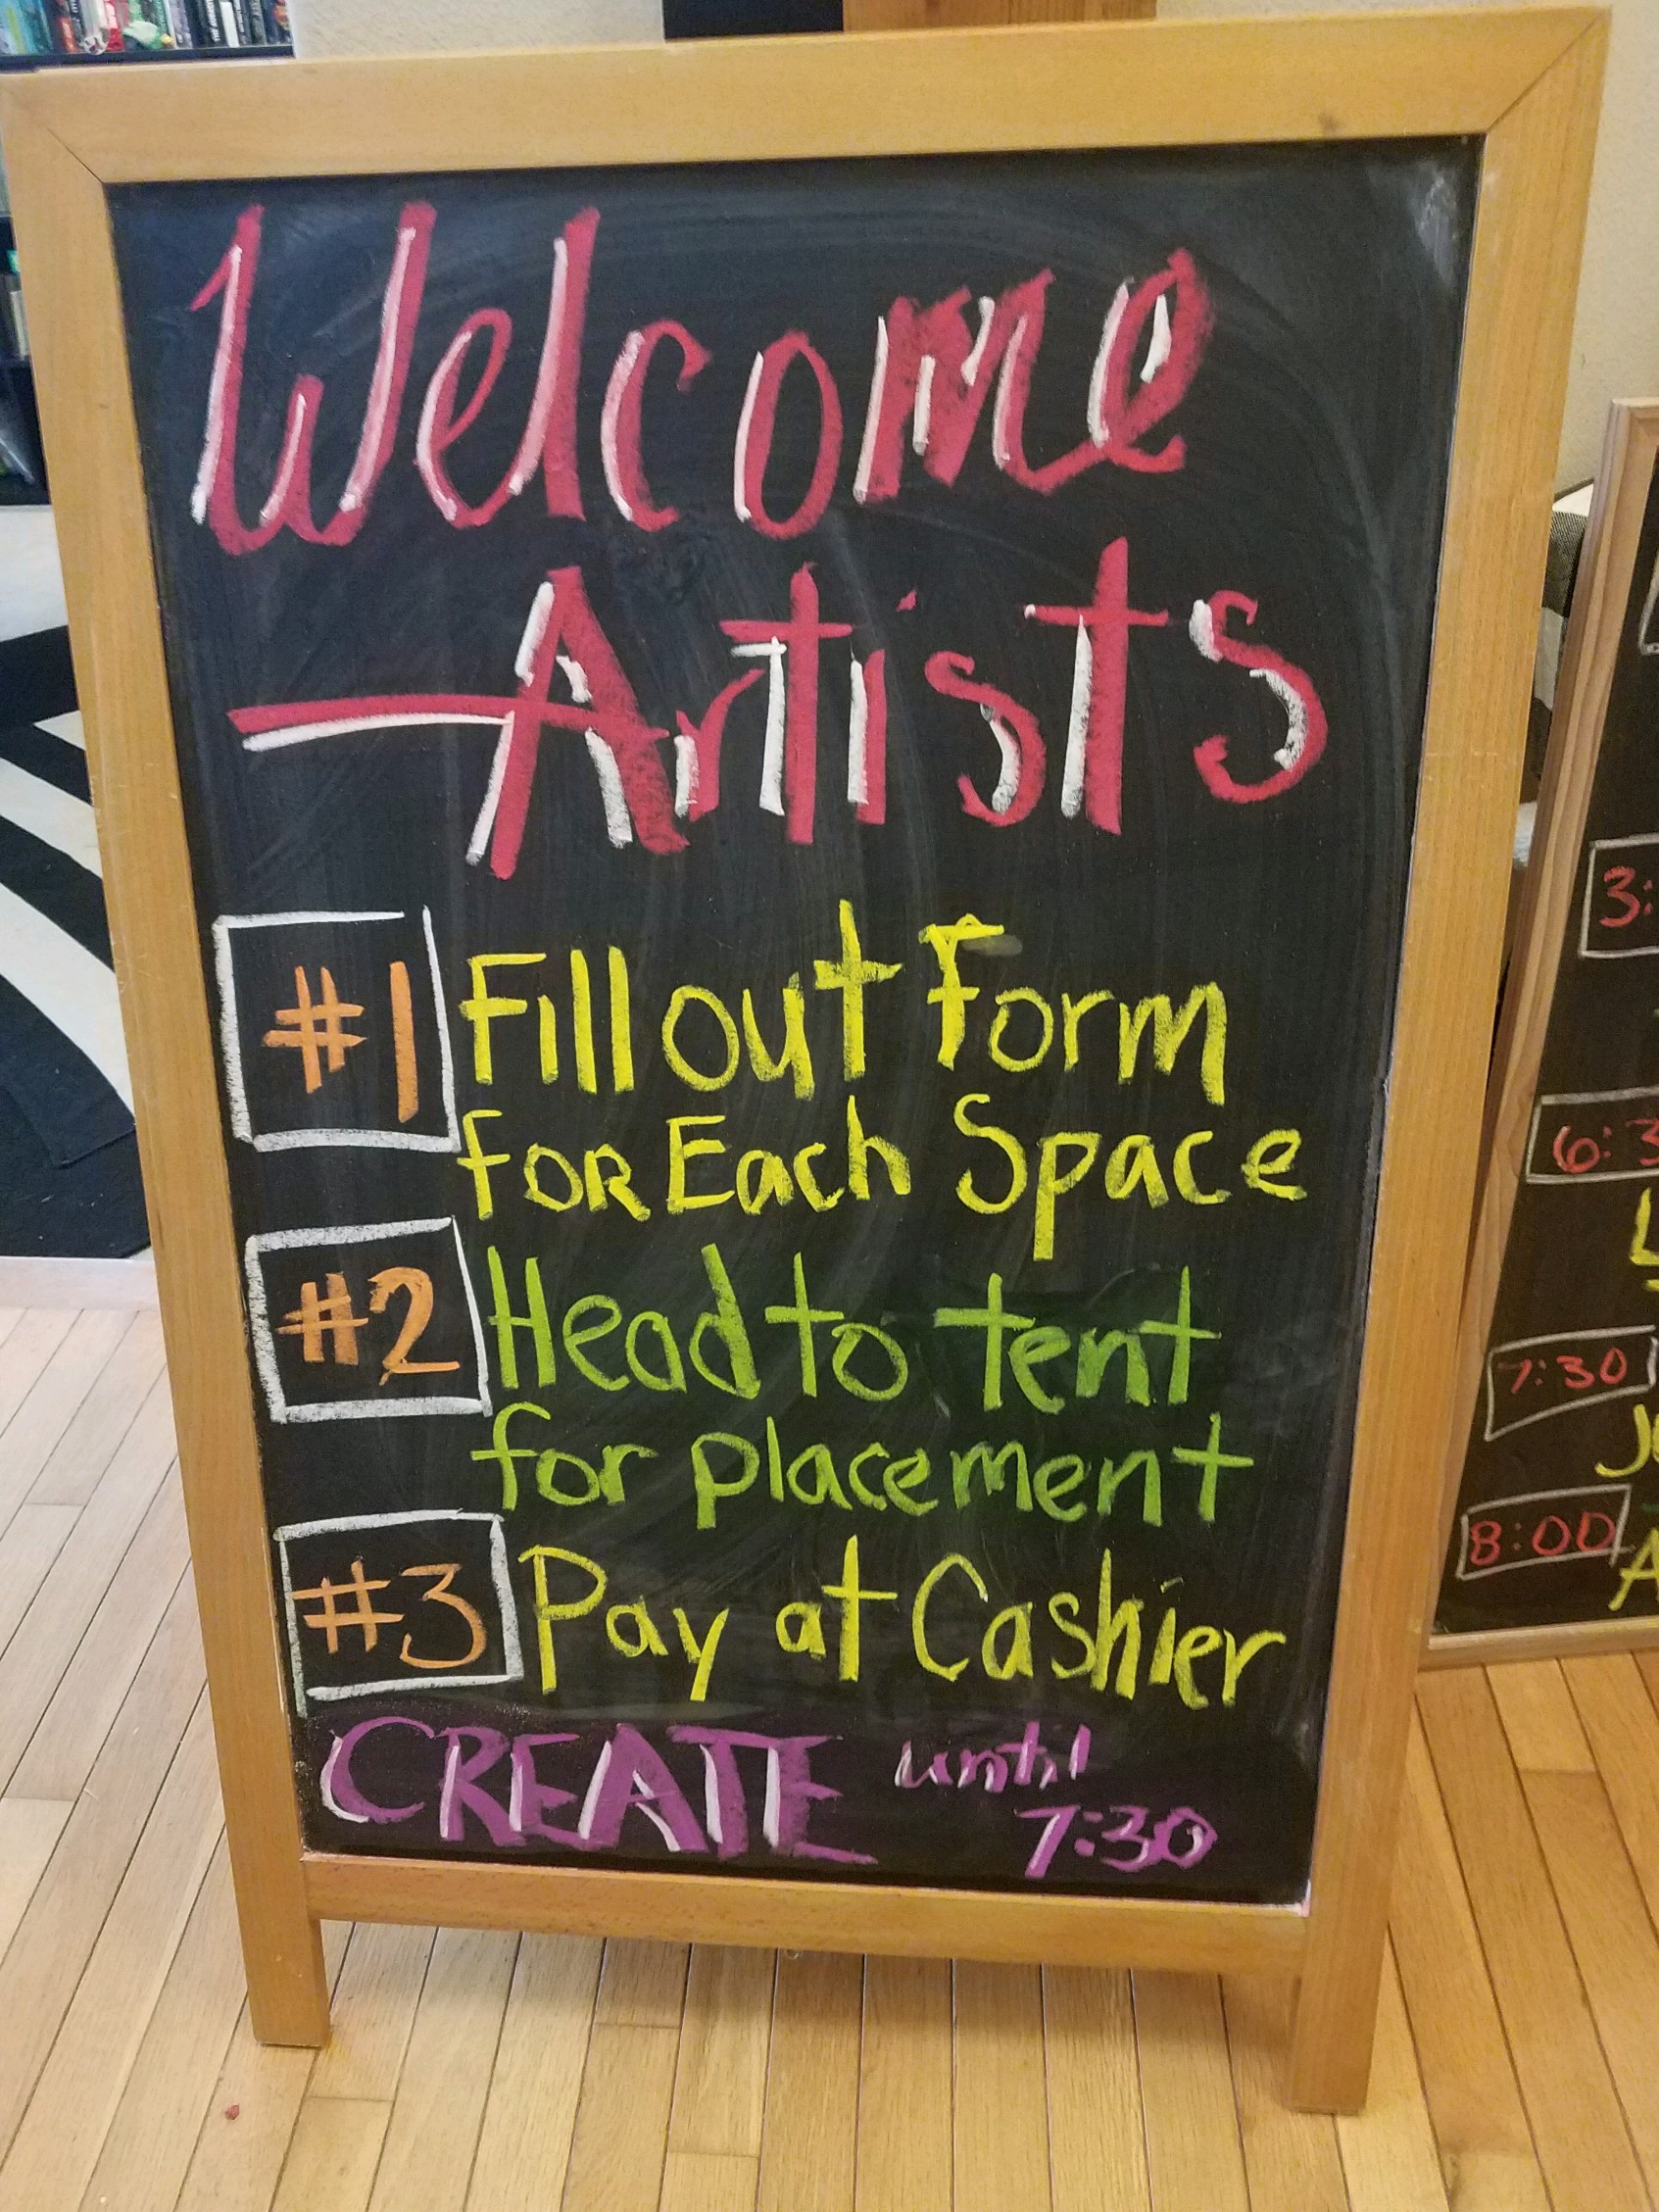 Welcome
Artists
#1 Fill out Form
FOR Each Space
#2 Head to tent
for placement
#3 Pay at Cashier
CREATE until
7:30
7:30
8:00